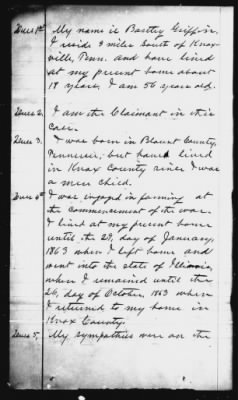 Ques 1st My name is Bartley Griffin.
I reside 9 miles South of Knox-
ville, Tenn. and have lived
at my present home about
19 years, I am 56 years old.
Ques 2, I am the Claimant in this
case.
Ques 3, I was born in Blount County,
Tennessee, but have lived
in Knox County since I was
a mere child.
Ques 4th I was engaged in farming at
the commencement of the war.
I lived at my present home
until the 29, day of January,
1863 when I left home and
went into the state of Illinois,
where I remained until the
26, day of October, 1863 when
I returned to my home in
Knox County.
Ques 5, My sympathies were on the